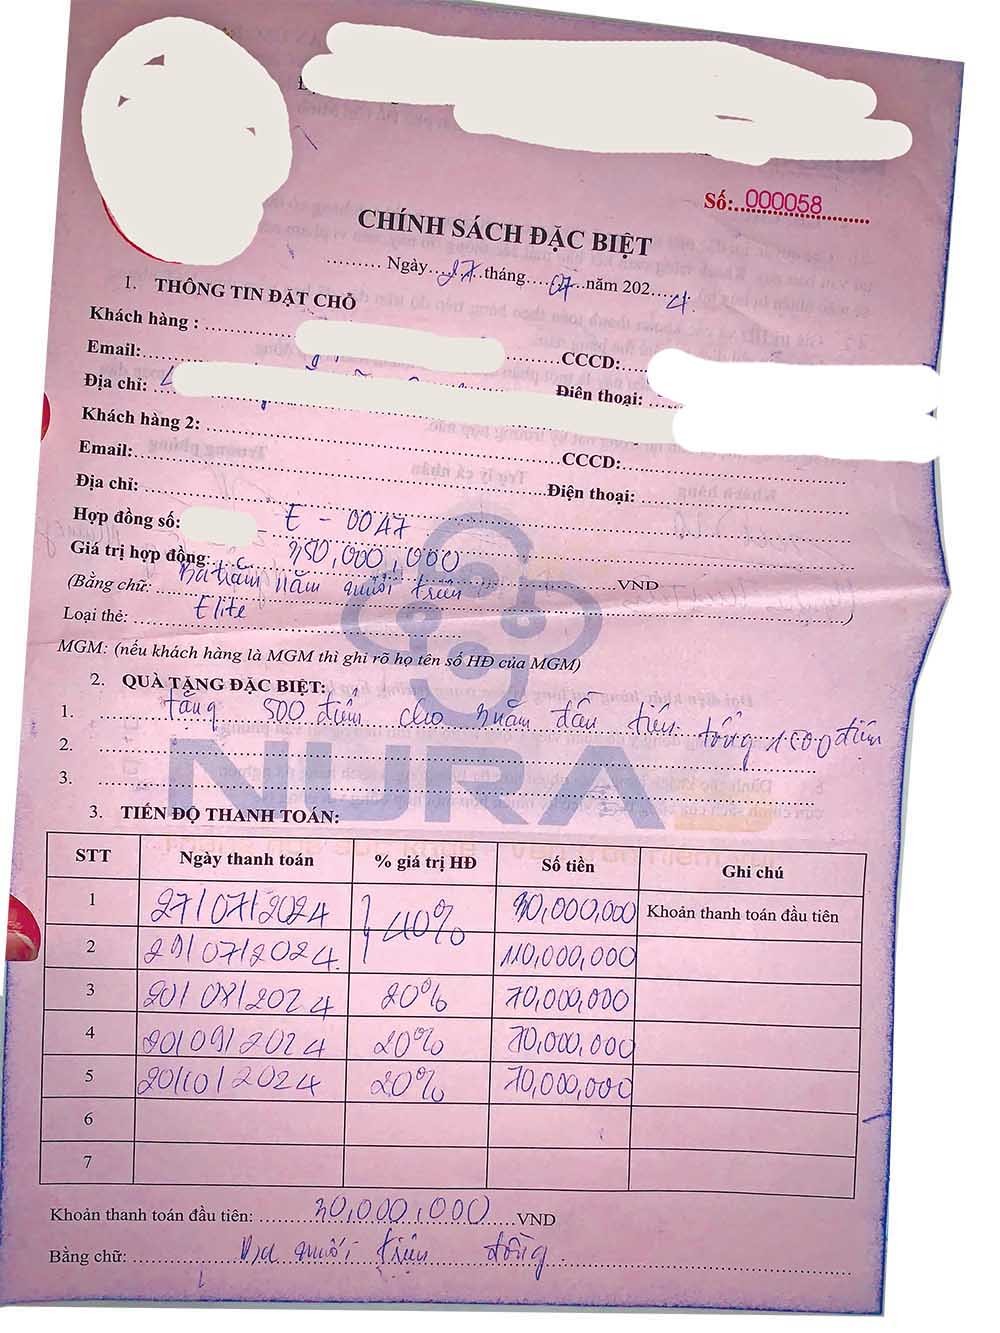 Số: 000058
CHÍNH SÁCH ĐẶC BIỆT
Ngày 27 tháng 07 năm 2024
1. THÔNG TIN ĐẶT CHỖ
Khách hàng :
CCCD:
Email:
Địa chỉ:
Điện thoại:
Khách hàng 2:
Email:
CCCD:
Địa chỉ:
Điện thoại:
Hợp đồng số: E - 00A7
Giá trị hợp đồng: 350,000,000 VND
(Bằng chữ: Ba trăm năm mươi triệu )
Loại thẻ: Elite
MGM: (nếu khách hàng là MGM thì ghi rõ họ tên số HĐ của MGM)
2. QUÀ TẶNG ĐẶC BIỆT:
1. tặng 500 điểm cho 3 năm đầu tiên tổng 1500 điểm
2.
3.
NURA
3. TIẾN ĐỘ THANH TOÁN:
STT Ngày thanh toán % giá trị HĐ Số tiền Ghi chú
1 27/07/2024 40% 30,000,000 Khoản thanh toán đầu tiên
2 29/07/2024 110,000,000
3 20/08/2024 20% 70,000,000
4 20/09/2024 20% 70,000,000
5 20/10/2024 20% 70,000,000
6
7
Khoản thanh toán đầu tiên: 30,000,000 VND
Bằng chữ: Ba mươi triệu đồng